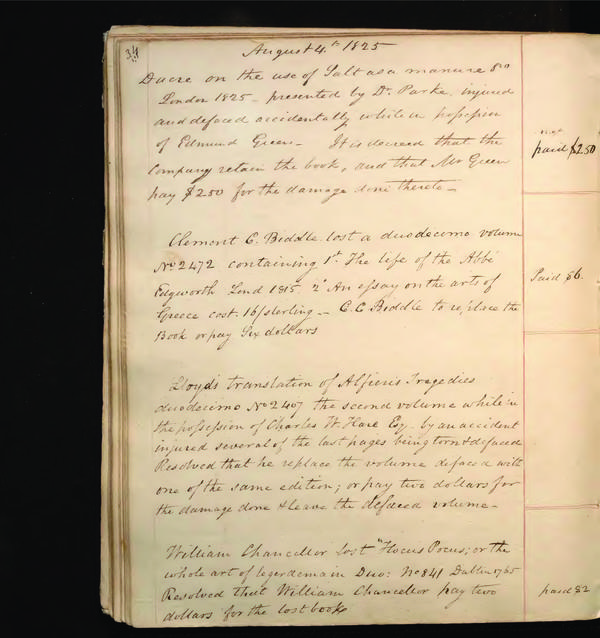 34
August 4.th 1825
Dacre on the use of Salt as a manure 8vo
London 1825 - presented by Dr. Parke, injured
and defaced accidentally while in possession
of Edmund Green - It is decreed that the
Company retain the book, and that Mr Green
pay $2.50 for the damage done thereto -
not
paid $2.50
Clement C. Biddle lost a duodecimo volume
No 2472 containing 1st. The life of the Abbé
Edgworth Lond 1815 2d An essay on the arts of
Greece cost 16/ sterling - C. C Biddle to replace the
Book or pay Six dollars
Paid $6.
Lloyd's translation of Alfieri's Tragedies
duodecimo No 2407 the second volume while in
the possession of Charles W. Hare Esq. by an accident
injured several of the last pages being torn & defaced
Resolved that he replace the volume defaced with
one of the same edition; or pay two dollars for
the damage done & leave the defaced volume -
William Chancellor lost "Hocus Pocus; or the
whole art of legerdemain Duo: No 841 Dublin 1765
Resolved that William Chancellor pay two
dollars for the lost book
paid $2